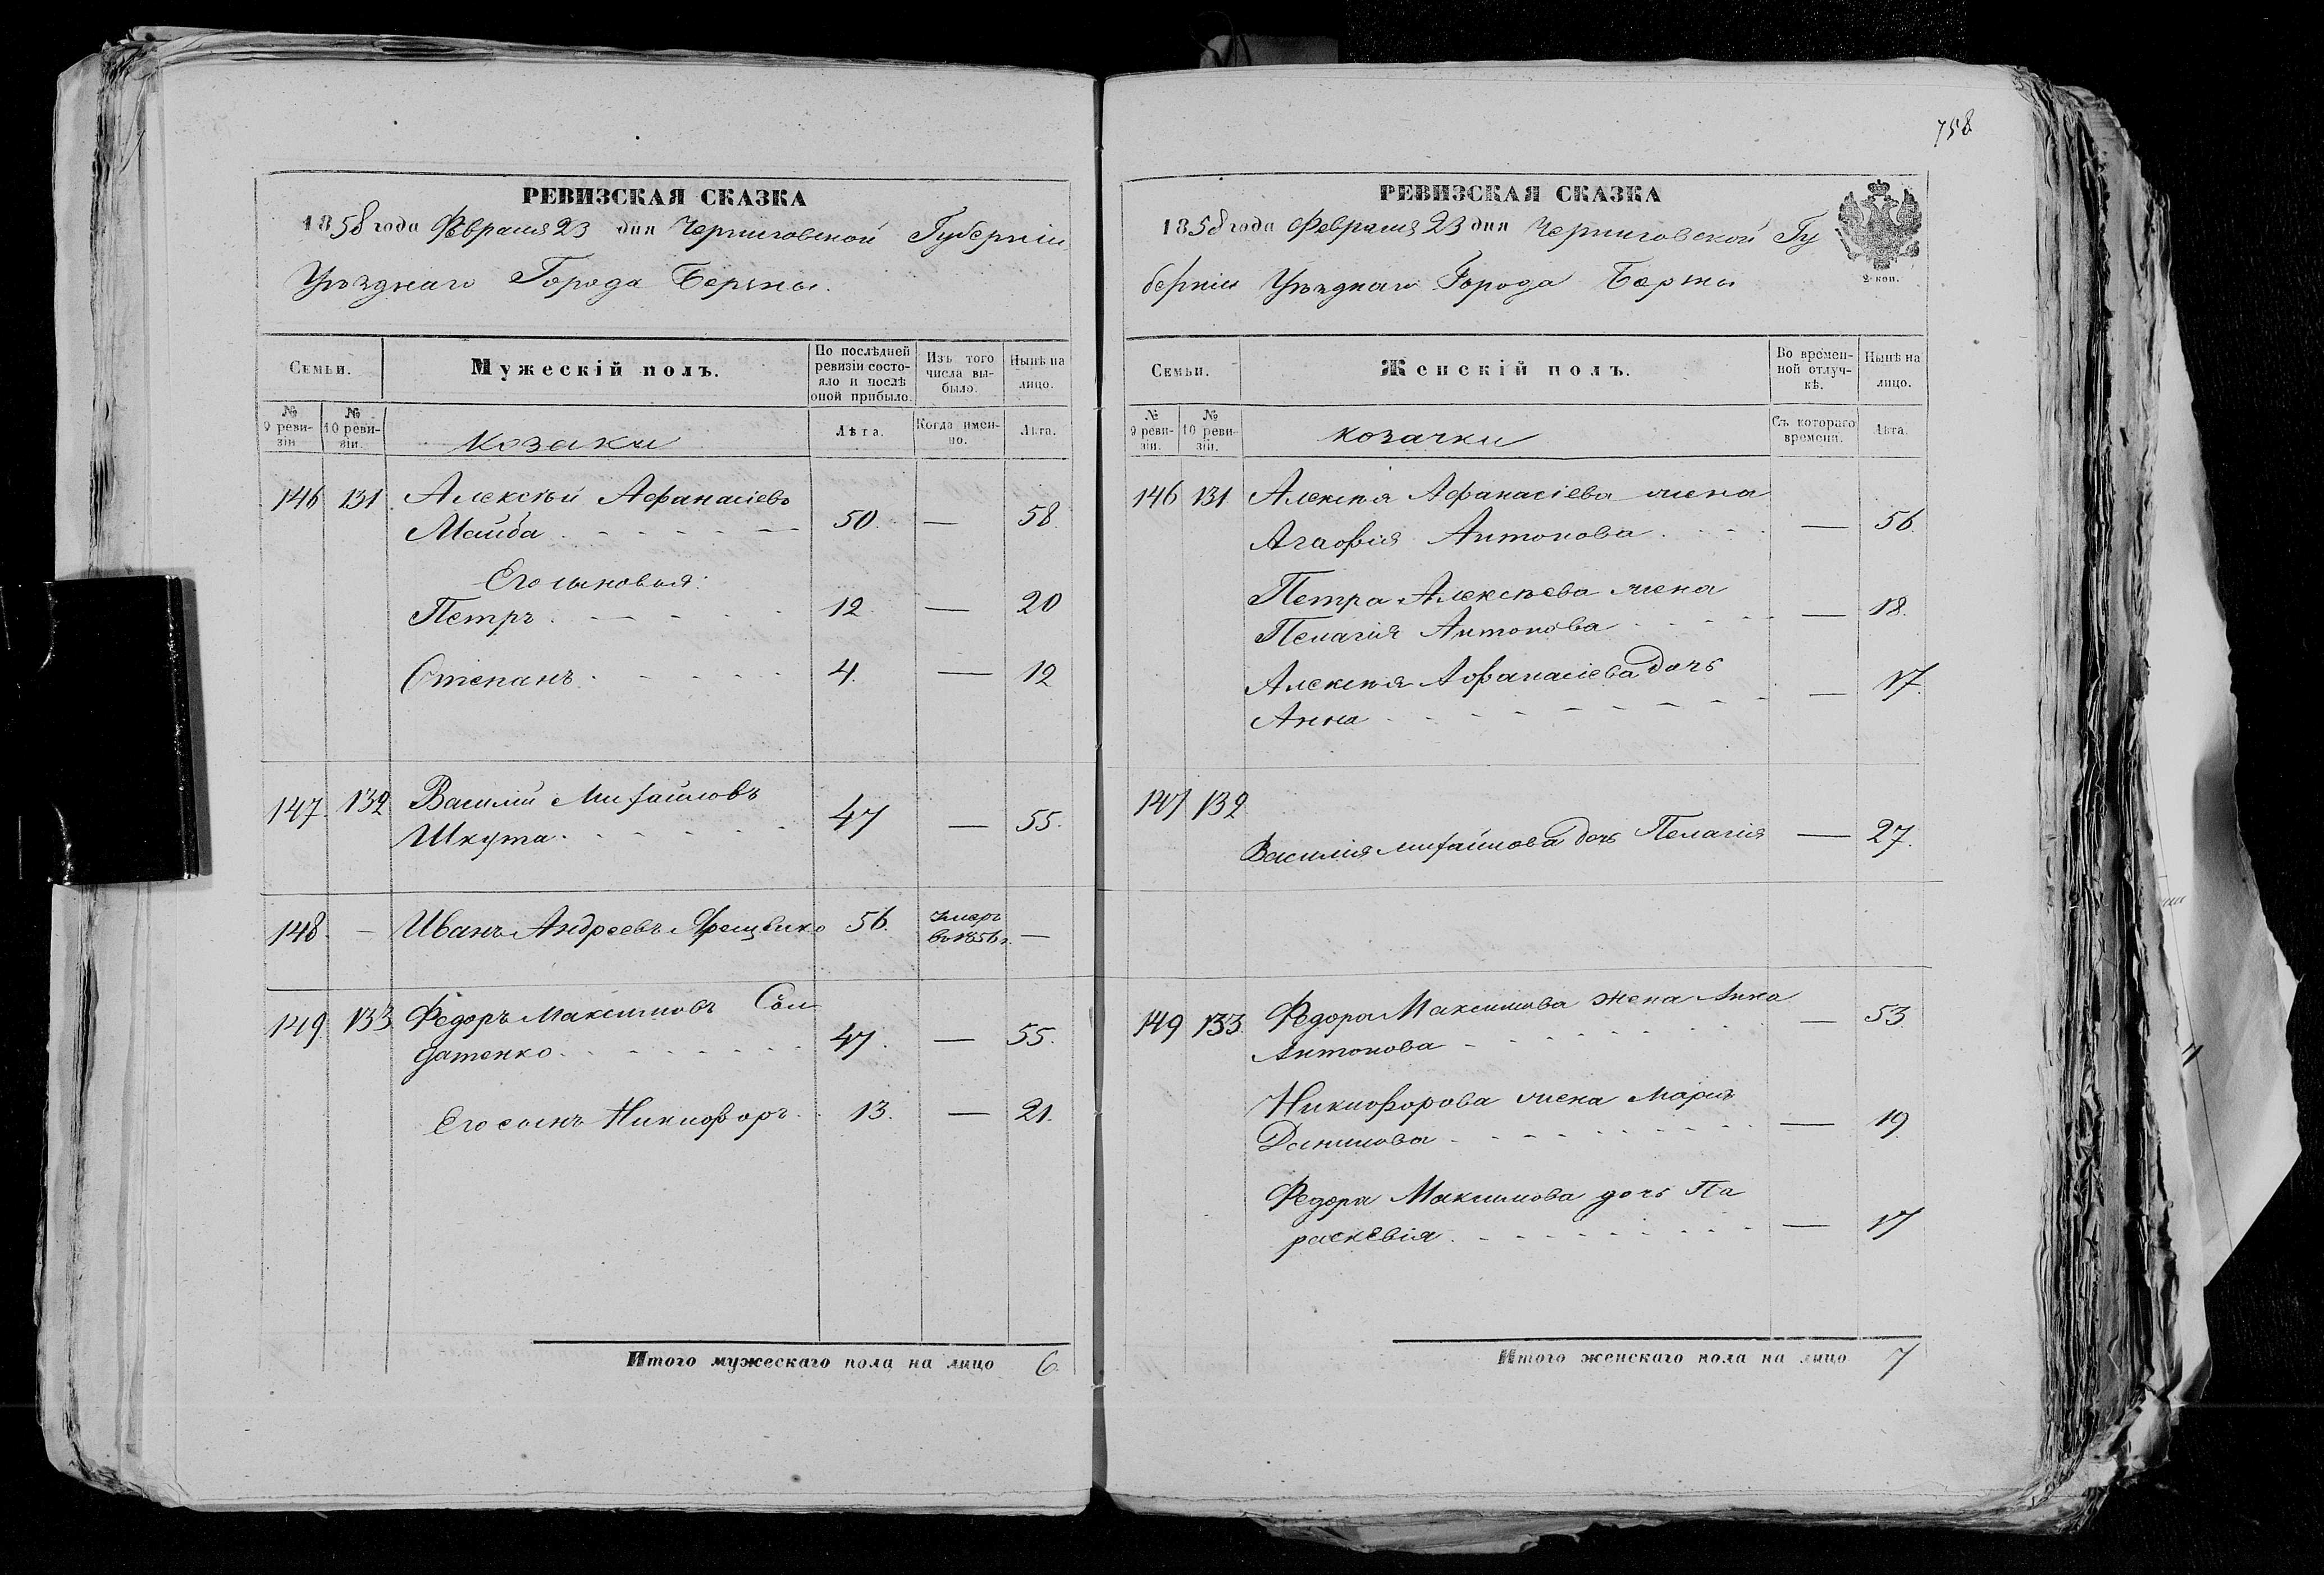 758
РЕВИЗСКАЯ СКАЗКА
1858 года Февраля 23 дня Черниговской Губерніи
Уѣзднаго Города Березны.
Семьи.
Мужескій полъ.
По послѣдней ревизіи состояло и послѣ оной прибыло.
Изъ того числа выбыло.
Нынѣ на лицо.
№ 9 ревизіи
№ 10 ревизіи.
Козаки
Лѣта.
Когда именно.
Лѣта.
146 131 Алексѣй Афанасіевъ
Майба 50. — 58.
Его сыновья:
Петръ 12 — 20
Степанъ 4. — 12
147. 132 Василій Михайловъ
Шкута 47 — 55.
148. — Иванъ Андреевъ 56. умеръ
въ 1856 г. —
149. 133 Федоръ Максимовъ Сол
датенко 47. — 55.
Его сынъ Никифоръ 13. — 21.
Итого мужескаго пола на лицо 6.
РЕВИЗСКАЯ СКАЗКА
1858 года Февраля 23 дня Черниговской Гу
берніи Уѣзднаго Города Березны
2 коп.
Семьи.
Женскій полъ.
Во временной отлучкѣ.
Нынѣ на лицо.
№ 9 ревизіи.
№ 10 ревизіи.
Козачки
Съ котораго времени.
Лѣта.
146 131 Алексѣя Афанасіева жена
Агафія Антонова — 56.
Петра Алексѣева жена
Пелагія Антонова — 18.
Алексѣя Афанасіева дочь
Анна — 17.
147 132
Василія Михайлова дочь Пелагія — 27.
149 133. Федора Максимова жена Анна
Антонова — 53.
Никифорова жена Марія
Данилова — 19.
Федора Максимова дочь Па
раскевія — 17
Итого женскаго пола на лицо 7